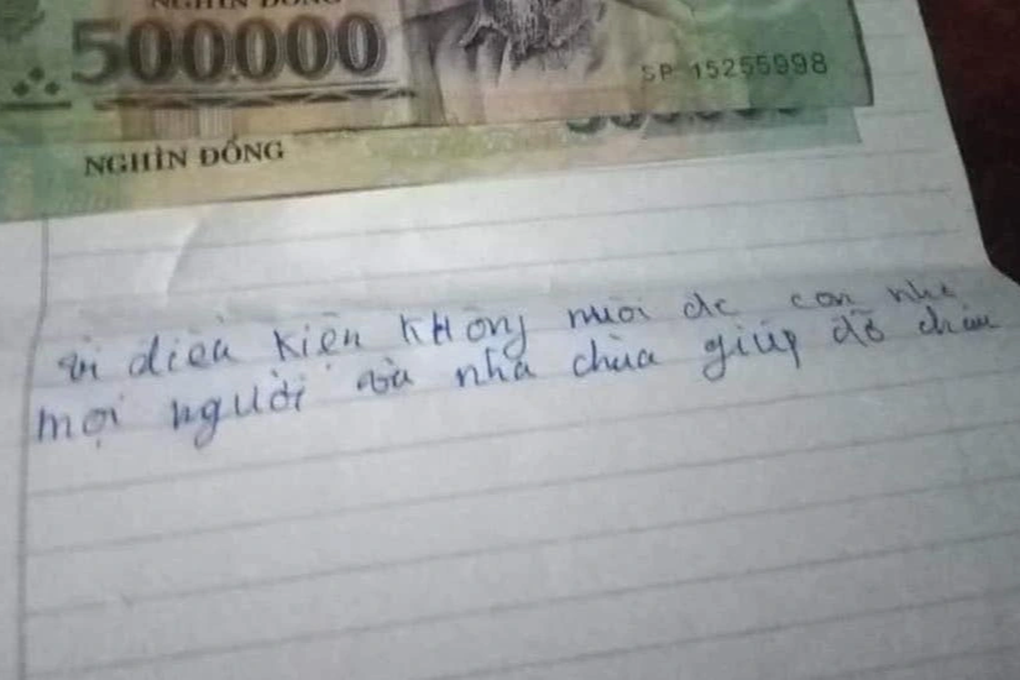 NGHÌN ĐỒNG
500.000
SP 15255998
NGHÌN ĐỒNG
vì điều kiện không nuôi dc con nhờ
mọi người và nhà chùa giúp đỡ cháu